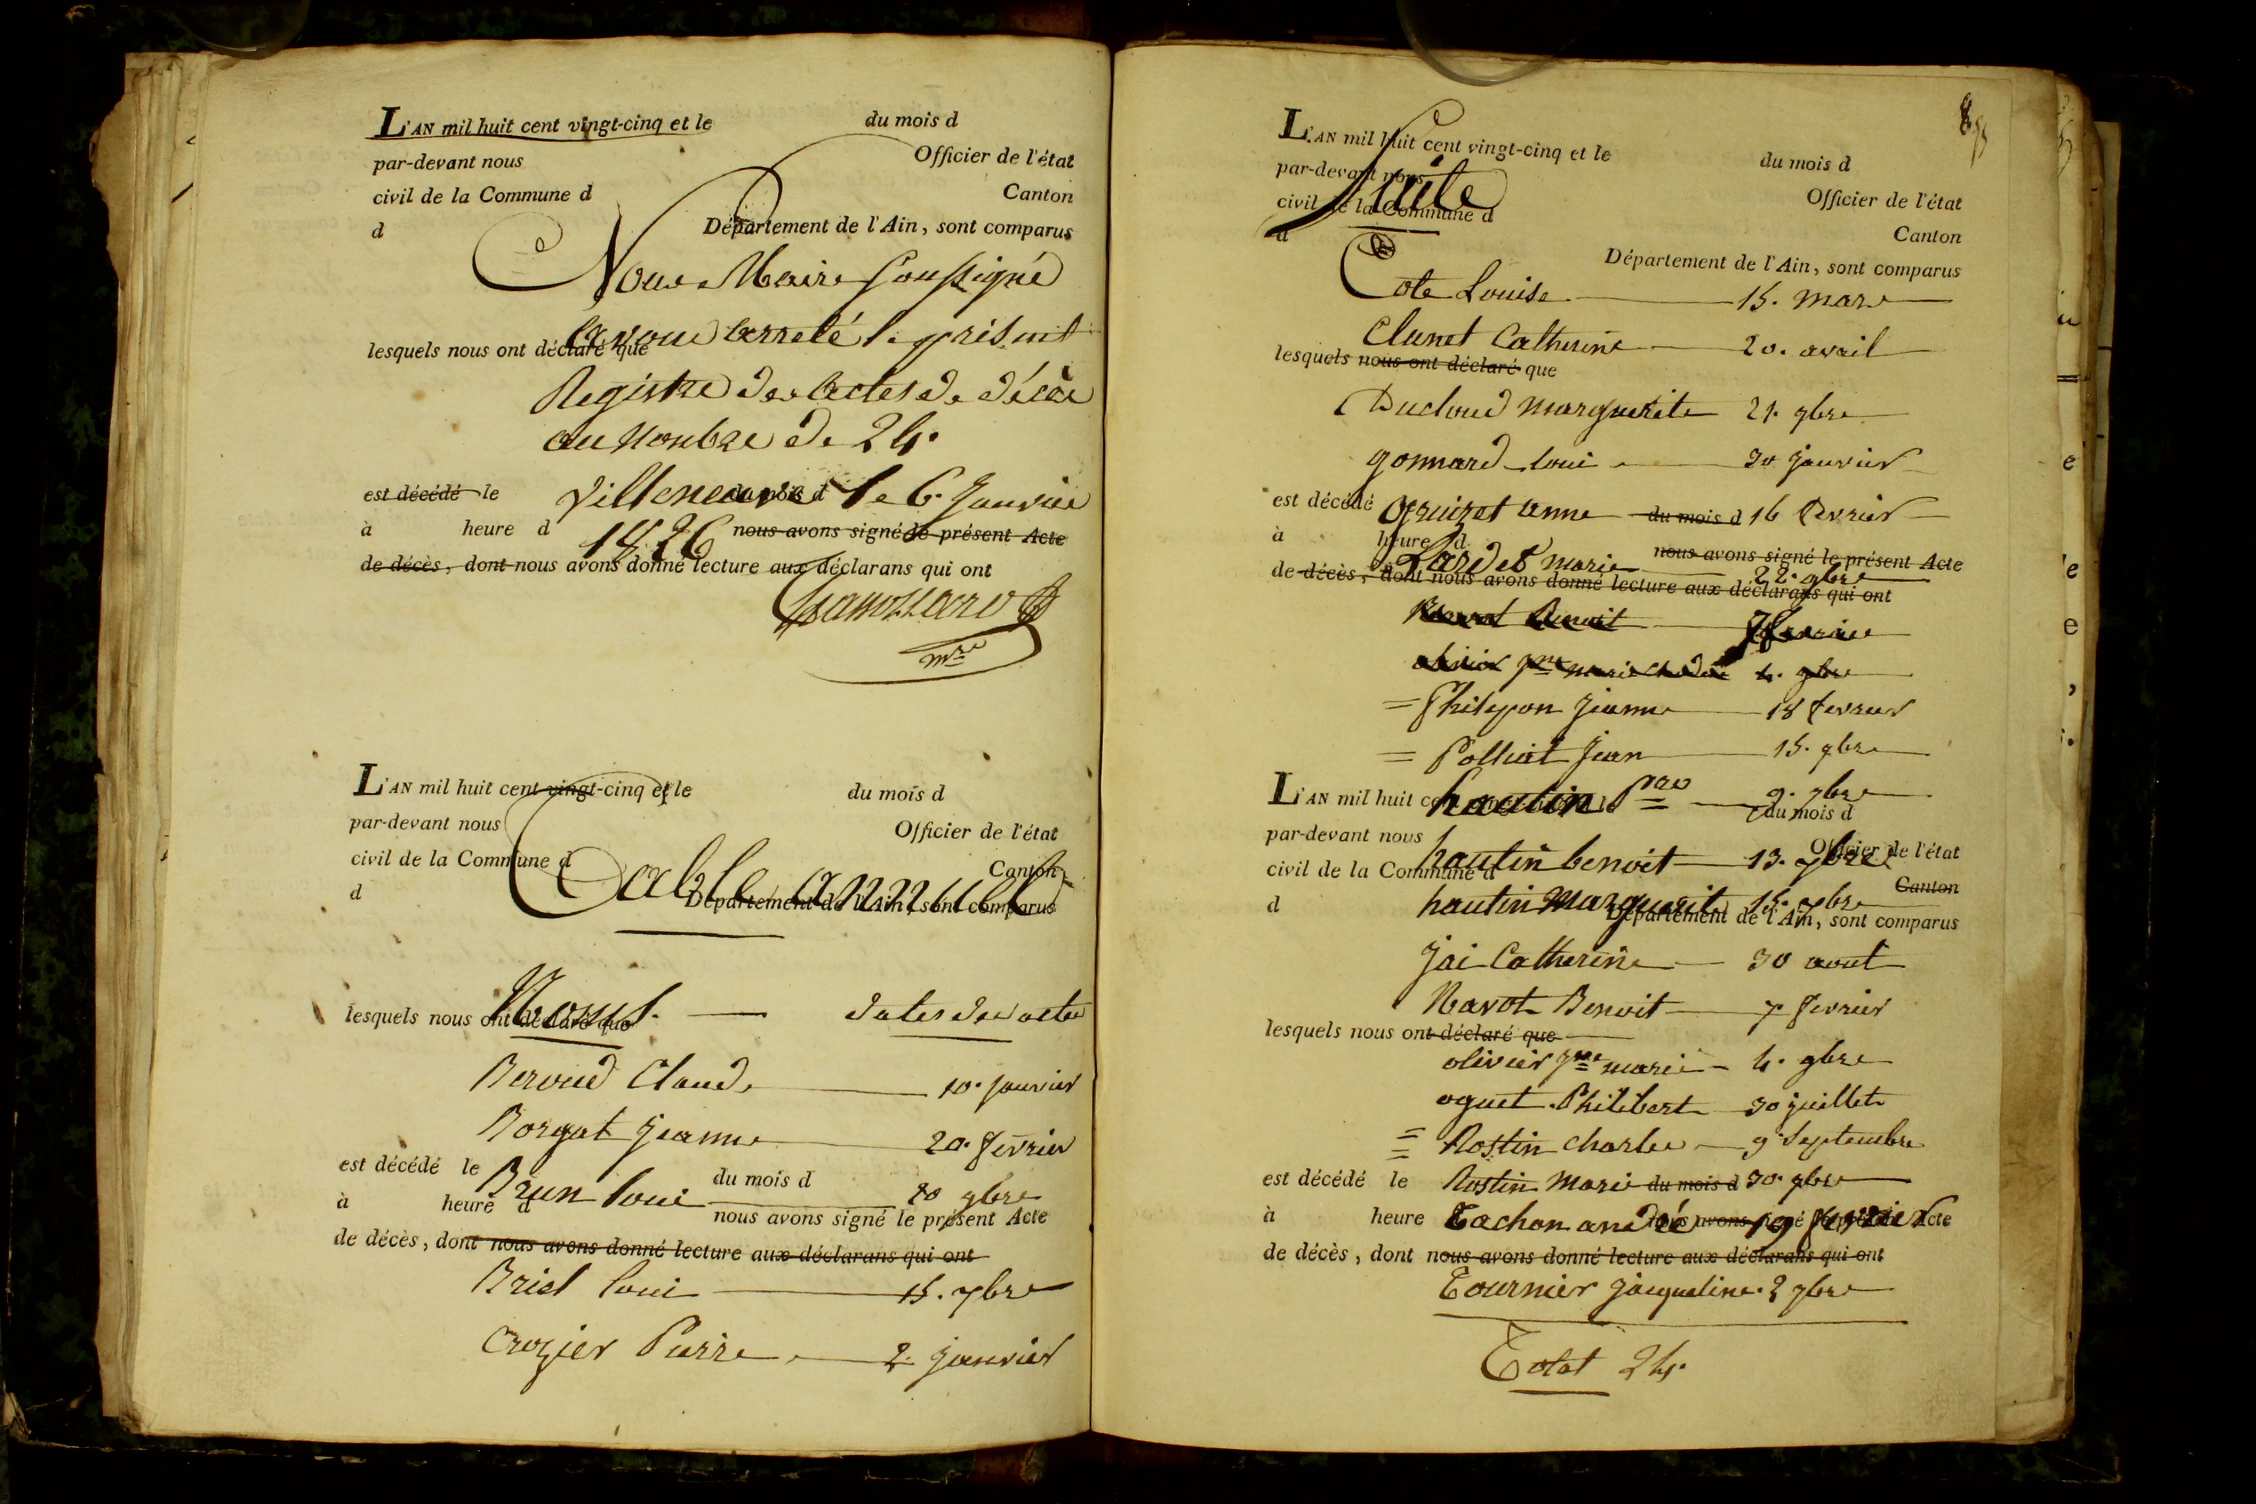 L'AN mil huit cent vingt-cinq et le du mois d
par-devant nous Officier de l'état
civil de la Commune d Canton
d Département de l'Ain, sont comparus
Nous Maire Soussigné
avons arreté le présent
lesquels nous ont déclaré que
Registre des actes de décès
au Nombre de 24.
est décédé le du mois d
Villeneuve le 6. Janvier
à heure d nous avons signé le présent Acte
1826
de décès, dont nous avons donné lecture aux déclarans qui ont
mre
L'AN mil huit cent vingt-cinq et le du mois d
par-devant nous Officier de l'état
civil de la Commune d Canton
Table annuelle
d Département de l'Ain, sont comparus
Noms. dates des actes
lesquels nous ont déclaré que
Beroud Claude 10. janvier
Borgat jeanne 20. fevrier
est décédé le du mois d
Brun loui 20 9bre
à heure d nous avons signé le présent Acte
de décès, dont nous avons donné lecture aux déclarans qui ont
Briel loui 15. 7bre
Crozier Pierre 2. janvier
L'AN mil huit cent vingt-cinq et le du mois d
par-devant nous Officier de l'état
Suite
civil de la Commune d Canton
d Département de l'Ain, sont comparus
Cote Louise 15. mars
Clunet Catherine 20. avril
lesquels nous ont déclaré que
Ducloud marguerite 21. 9bre
gonnard loui 30 janvier
est décédé du mois d
gruizet anne 16 fevrier
à heure d nous avons signé le présent Acte
Lardet marie 22. 9bre
de décès, dont nous avons donné lecture aux déclarans qui ont
Navot Benoit 7 fevrier
olivier marie 4. 9bre
= Philipon jeanne 18 fevrier
= Polliat jean 15. 9bre
L'AN mil huit cent vingt-cinq et le du mois d
hautin Pre 9. 7bre
par-devant nous Officier de l'état
hautin benoit 13. 7bre
civil de la Commune d Canton
hautin Marguerite 15. 7bre
d Département de l'Ain, sont comparus
jai Catherine 30 aout
Navot Benoit 7 fevrier
lesquels nous ont déclaré que
olivier marie 4. 9bre
oguet Philibert 30 juillet
= Rostin Charles 9. Septembre
est décédé le du mois d
Rostin Marie 30. 9bre
à heure nous avons signé le présent Acte
Tachon andré 19 fevrier
de décès, dont nous avons donné lecture aux déclarans qui ont
Tournier jacqueline. 2 9bre
Total 24.